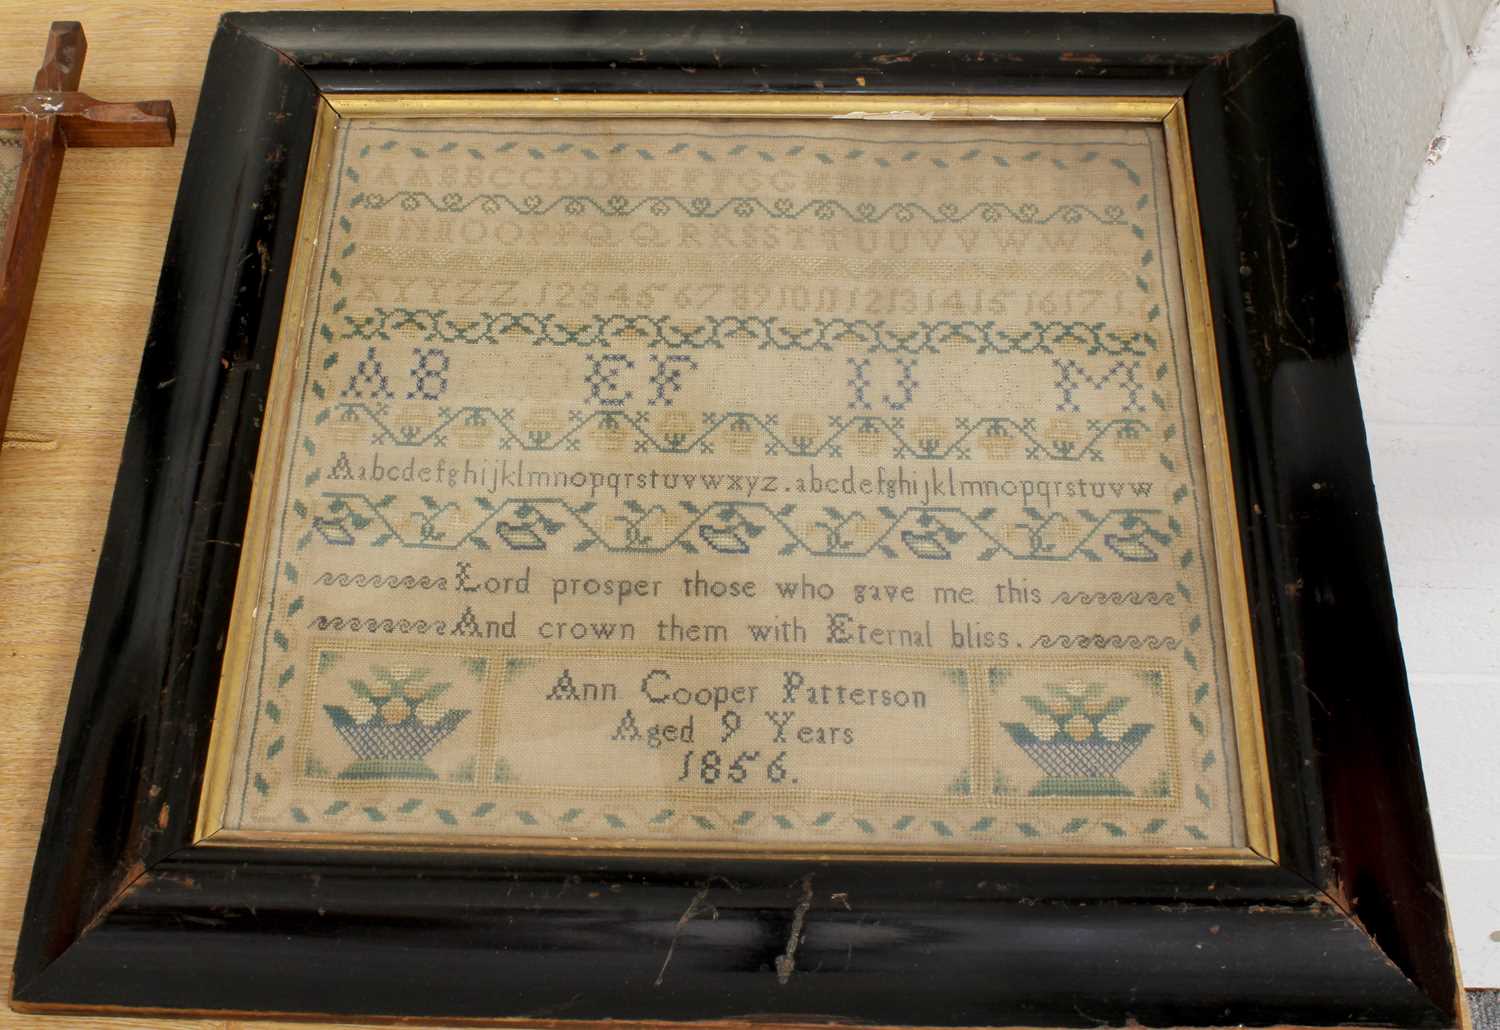 AABBCCDDEEFFGGHHIIJJKKLLMM
NNOOPPQQRRSSTTUUVVWWX
XYYZZ.1234567891011121314151617 1
AB EF IJ M
Aabcdefghijklmnopqrstuvwxyz.abcdefghijklmnopqrstuvw
Lord prosper those who gave me this
And crown them with Eternal bliss.
Ann Cooper Patterson
Aged 9 Years
1856.